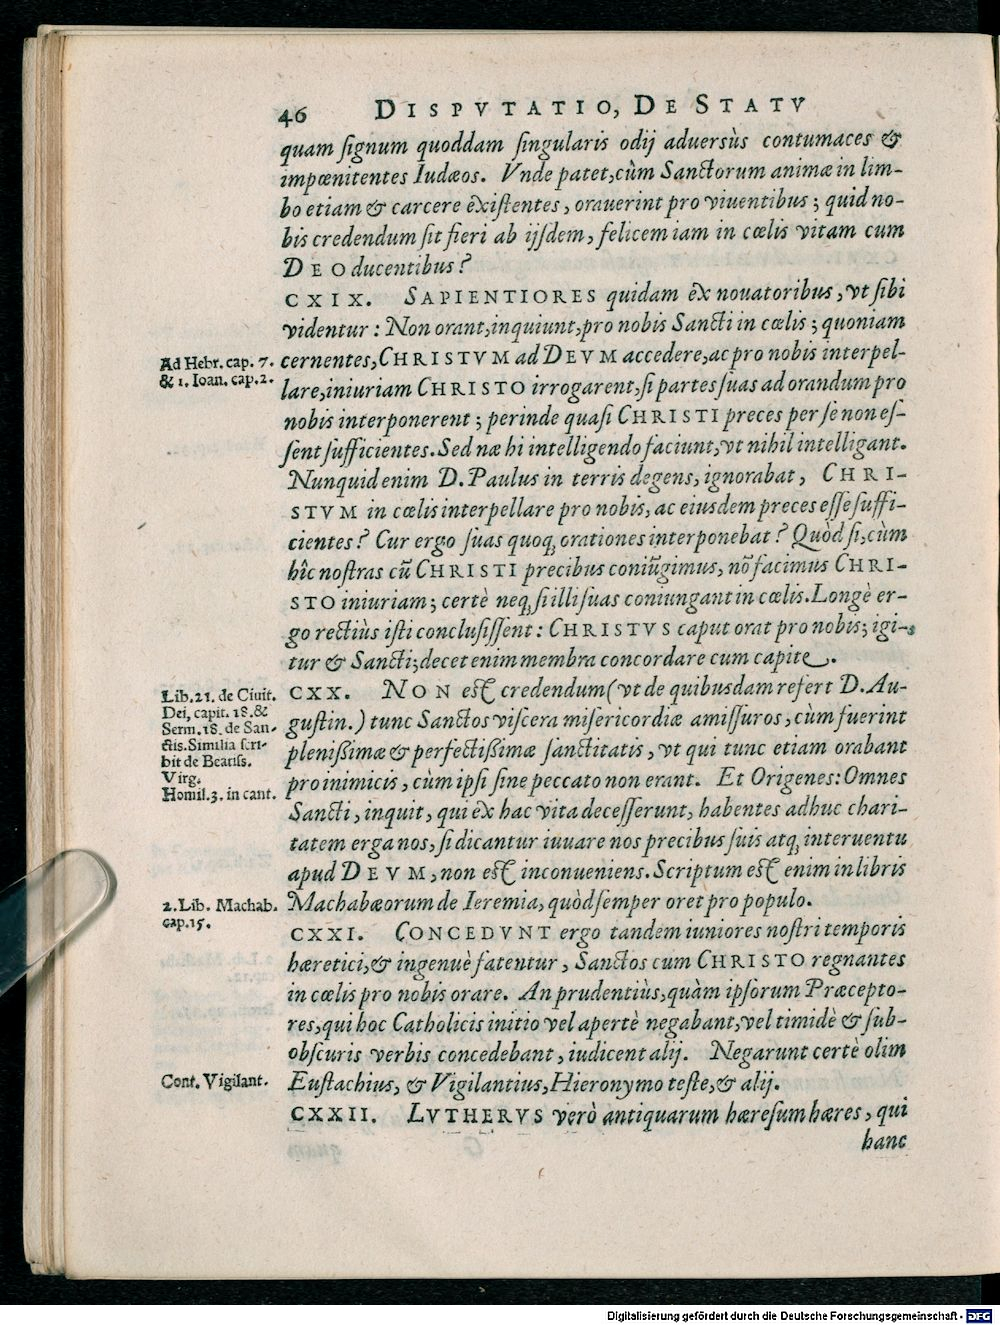 46 DISPVTATIO, DE STATV
quam signum quoddam singularis odij aduersùs contumaces &
impœnitentes Iudæos. Vnde patet, cùm Sanctorum animæ in lim-
bo etiam & carcere existentes, orauerint pro viuentibus; quid no-
bis credendum sit fieri ab ijsdem, felicem iam in cœlis vitam cum
DEO ducentibus?
CXIX. SAPIENTIORES quidam ex nouatoribus, vt sibi
videntur: Non orant, inquiunt, pro nobis Sancti in cœlis; quoniam
Ad Hebr. cap. 7.
& 1. Ioan. cap. 2.
cernentes, CHRISTVM ad DEVM accedere, ac pro nobis interpel-
lare, iniuriam CHRISTO irrogarent, si partes suas ad orandum pro
nobis interponerent; perinde quasi CHRISTI preces per se non es-
sent sufficientes. Sed næ hi intelligendo faciunt, vt nihil intelligant.
Nunquid enim D. Paulus in terris degens, ignorabat, CHRI-
STVM in cœlis interpellare pro nobis, ac eiusdem preces esse suffi-
cientes? Cur ergo suas quoq; orationes interponebat? Quòd si, cùm
hîc nostras cũ CHRISTI precibus coniũgimus, nõ facimus CHRI-
STO iniuriam; certè neq; si illi suas coniungant in cœlis. Longè er-
go rectiùs isti conclusissent: CHRISTVS caput orat pro nobis; igi-
tur & Sancti; decet enim membra concordare cum capite.
Lib. 21. de Ciuit.
Dei, capit. 18. &
Serm. 18. de San-
ctis. Similia scri-
bit de Beatiss.
Virg.
Homil. 3. in cant.
CXX. NON est credendum (vt de quibusdam refert D. Au-
gustin.) tunc Sanctos viscera misericordiæ amissuros, cùm fuerint
plenissimæ & perfectissimæ sanctitatis, vt qui tunc etiam orabant
pro inimicis, cùm ipsi sine peccato non erant. Et Origenes: Omnes
Sancti, inquit, qui ex hac vita decesserunt, habentes adhuc chari-
tatem erga nos, si dicantur iuuare nos precibus suis atq; interuentu
apud DEVM, non est inconueniens. Scriptum est enim in libris
2. Lib. Machab.
cap. 15.
Machabæorum de Ieremia, quòd semper oret pro populo.
CXXI. CONCEDVNT ergo tandem iuniores nostri temporis
hæretici, & ingenuè fatentur, Sanctos cum CHRISTO regnantes
in cœlis pro nobis orare. An prudentiùs, quàm ipsorum Præcepto-
res, qui hoc Catholicis initio vel apertè negabant, vel timidè & sub-
obscuris verbis concedebant, iudicent alij. Negarunt certè olim
Cont. Vigilant.
Eustachius, & Vigilantius, Hieronymo teste, & alij.
CXXII. LVTHERVS verò antiquarum hæresum hæres, qui
hanc
Digitalisierung gefördert durch die Deutsche Forschungsgemeinschaft - DFG